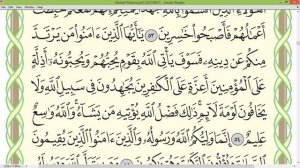 Mushaf Madina.pdf (SECURED) - Adobe Reader
أَعْمَٰلُهُمْ فَأَصْبَحُوا۟ خَٰسِرِينَ ٥٣ يَٰٓأَيُّهَا ٱلَّذِينَ ءَامَنُوا۟ مَن يَرْتَدَّ
مِنكُمْ عَن دِينِهِۦ فَسَوْفَ يَأْتِى ٱللَّهُ بِقَوْمٍ يُحِبُّهُمْ وَيُحِبُّونَهُۥٓ أَذِلَّةٍ
عَلَى ٱلْمُؤْمِنِينَ أَعِزَّةٍ عَلَى ٱلْكَٰفِرِينَ يُجَٰهِدُونَ فِى سَبِيلِ ٱللَّهِ وَلَا
يَخَافُونَ لَوْمَةَ لَآئِمٍ ذَٰلِكَ فَضْلُ ٱللَّهِ يُؤْتِيهِ مَن يَشَآءُ وَٱللَّهُ وَٰسِعٌ
عَلِيمٌ ٥٤ إِنَّمَا وَلِيُّكُمُ ٱللَّهُ وَرَسُولُهُۥ وَٱلَّذِينَ ءَامَنُوا۟ ٱلَّذِينَ يُقِيمُونَ